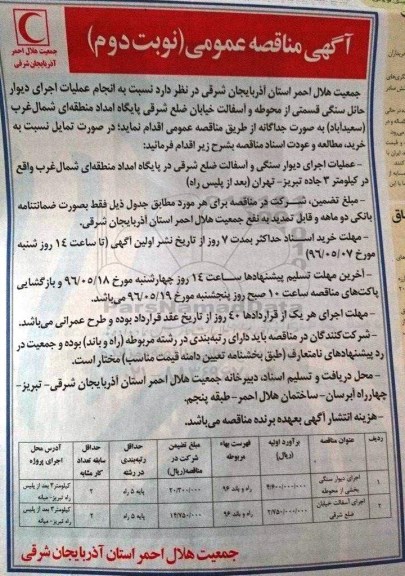 جمعیت هلال احمر
آذربایجان شرقی
آگهی مناقصه عمومی (نوبت دوم)
جمعیت هلال احمر استان آذربایجان شرقی در نظر دارد نسبت به انجام عملیات اجرای دیوار
حائل سنگی قسمتی از محوطه و آسفالت خیابان ضلع شرقی پایگاه امداد منطقه‌ای شمال‌غرب
(سعیدآباد) به صورت جداگانه از طریق مناقصه عمومی اقدام نماید؛ در صورت تمایل نسبت به
خرید، مطالعه و عودت اسناد مناقصه بشرح زیر اقدام فرمائید:
- عملیات اجرای دیوار سنگی و آسفالت ضلع شرقی در پایگاه امداد منطقه‌ای شمال‌غرب واقع
در کیلومتر ۳ جاده تبریز- تهران (بعد از پلیس راه)
- مبلغ تضمین، شرکت در مناقصه برای هر مورد مطابق جدول ذیل فقط بصورت ضمانتنامه
بانکی دو ماهه و قابل تمدید به نفع جمعیت هلال احمر استان آذربایجان شرقی.
- مهلت خرید اسناد حداکثر بمدت ۷ روز از تاریخ نشر اولین آگهی (تا ساعت ۱۴ روز شنبه
مورخ ۹۶/۰۵/۰۷)
- آخرین مهلت تسلیم پیشنهادها ساعت ۱۴ روز چهارشنبه مورخ ۹۶/۰۵/۱۸ و بازگشایی
پاکت‌های مناقصه ساعت ۱۰ صبح روز پنجشنبه مورخ ۹۶/۰۵/۱۹ می‌باشد.
- مهلت اجرای هر یک از قراردادها ۴۰ روز از تاریخ عقد قرارداد بوده و طرح عمرانی می‌باشد.
- شرکت‌کنندگان در مناقصه باید دارای رتبه‌بندی در رشته مربوطه (راه و باند) بوده و جمعیت در
رد پیشنهادهای نامتعارف (طبق بخشنامه تعیین دامنه قیمت مناسب) مختار است.
- محل دریافت و تسلیم اسناد، دبیرخانه جمعیت هلال احمر استان آذربایجان شرقی- تبریز-
چهارراه آبرسان- ساختمان هلال احمر- طبقه پنجم.
- هزینه انتشار آگهی بعهده برنده مناقصه می‌باشد.
ردیف عنوان مناقصه برآورد اولیه (ریال) فهرست بهاء مربوطه مبلغ تضمین شرکت در مناقصه(ریال) حداقل رتبه‌بندی در رشته حداقل سابقه تعداد کار مشابه آدرس محل اجرای پروژه
۱ اجرای دیوار سنگی بخشی از محوطه راه و باند ۹۶ ۲۰/۳۰۰/۰۰۰ پایه ۵ راه ۲ کیلومتر۳ بعد از پلیس راه تبریز- میانه
۲ اجرای آسفالت خیابان ضلع شرقی ۲/۷۵۰/۰۰۰/۰۰۰ راه و باند ۹۶ ۱۴/۷۵۰/۰۰۰ پایه ۵ راه ۲ کیلومتر۳ بعد از پلیس راه تبریز- میانه
جمعیت هلال احمر استان آذربایجان شرقی